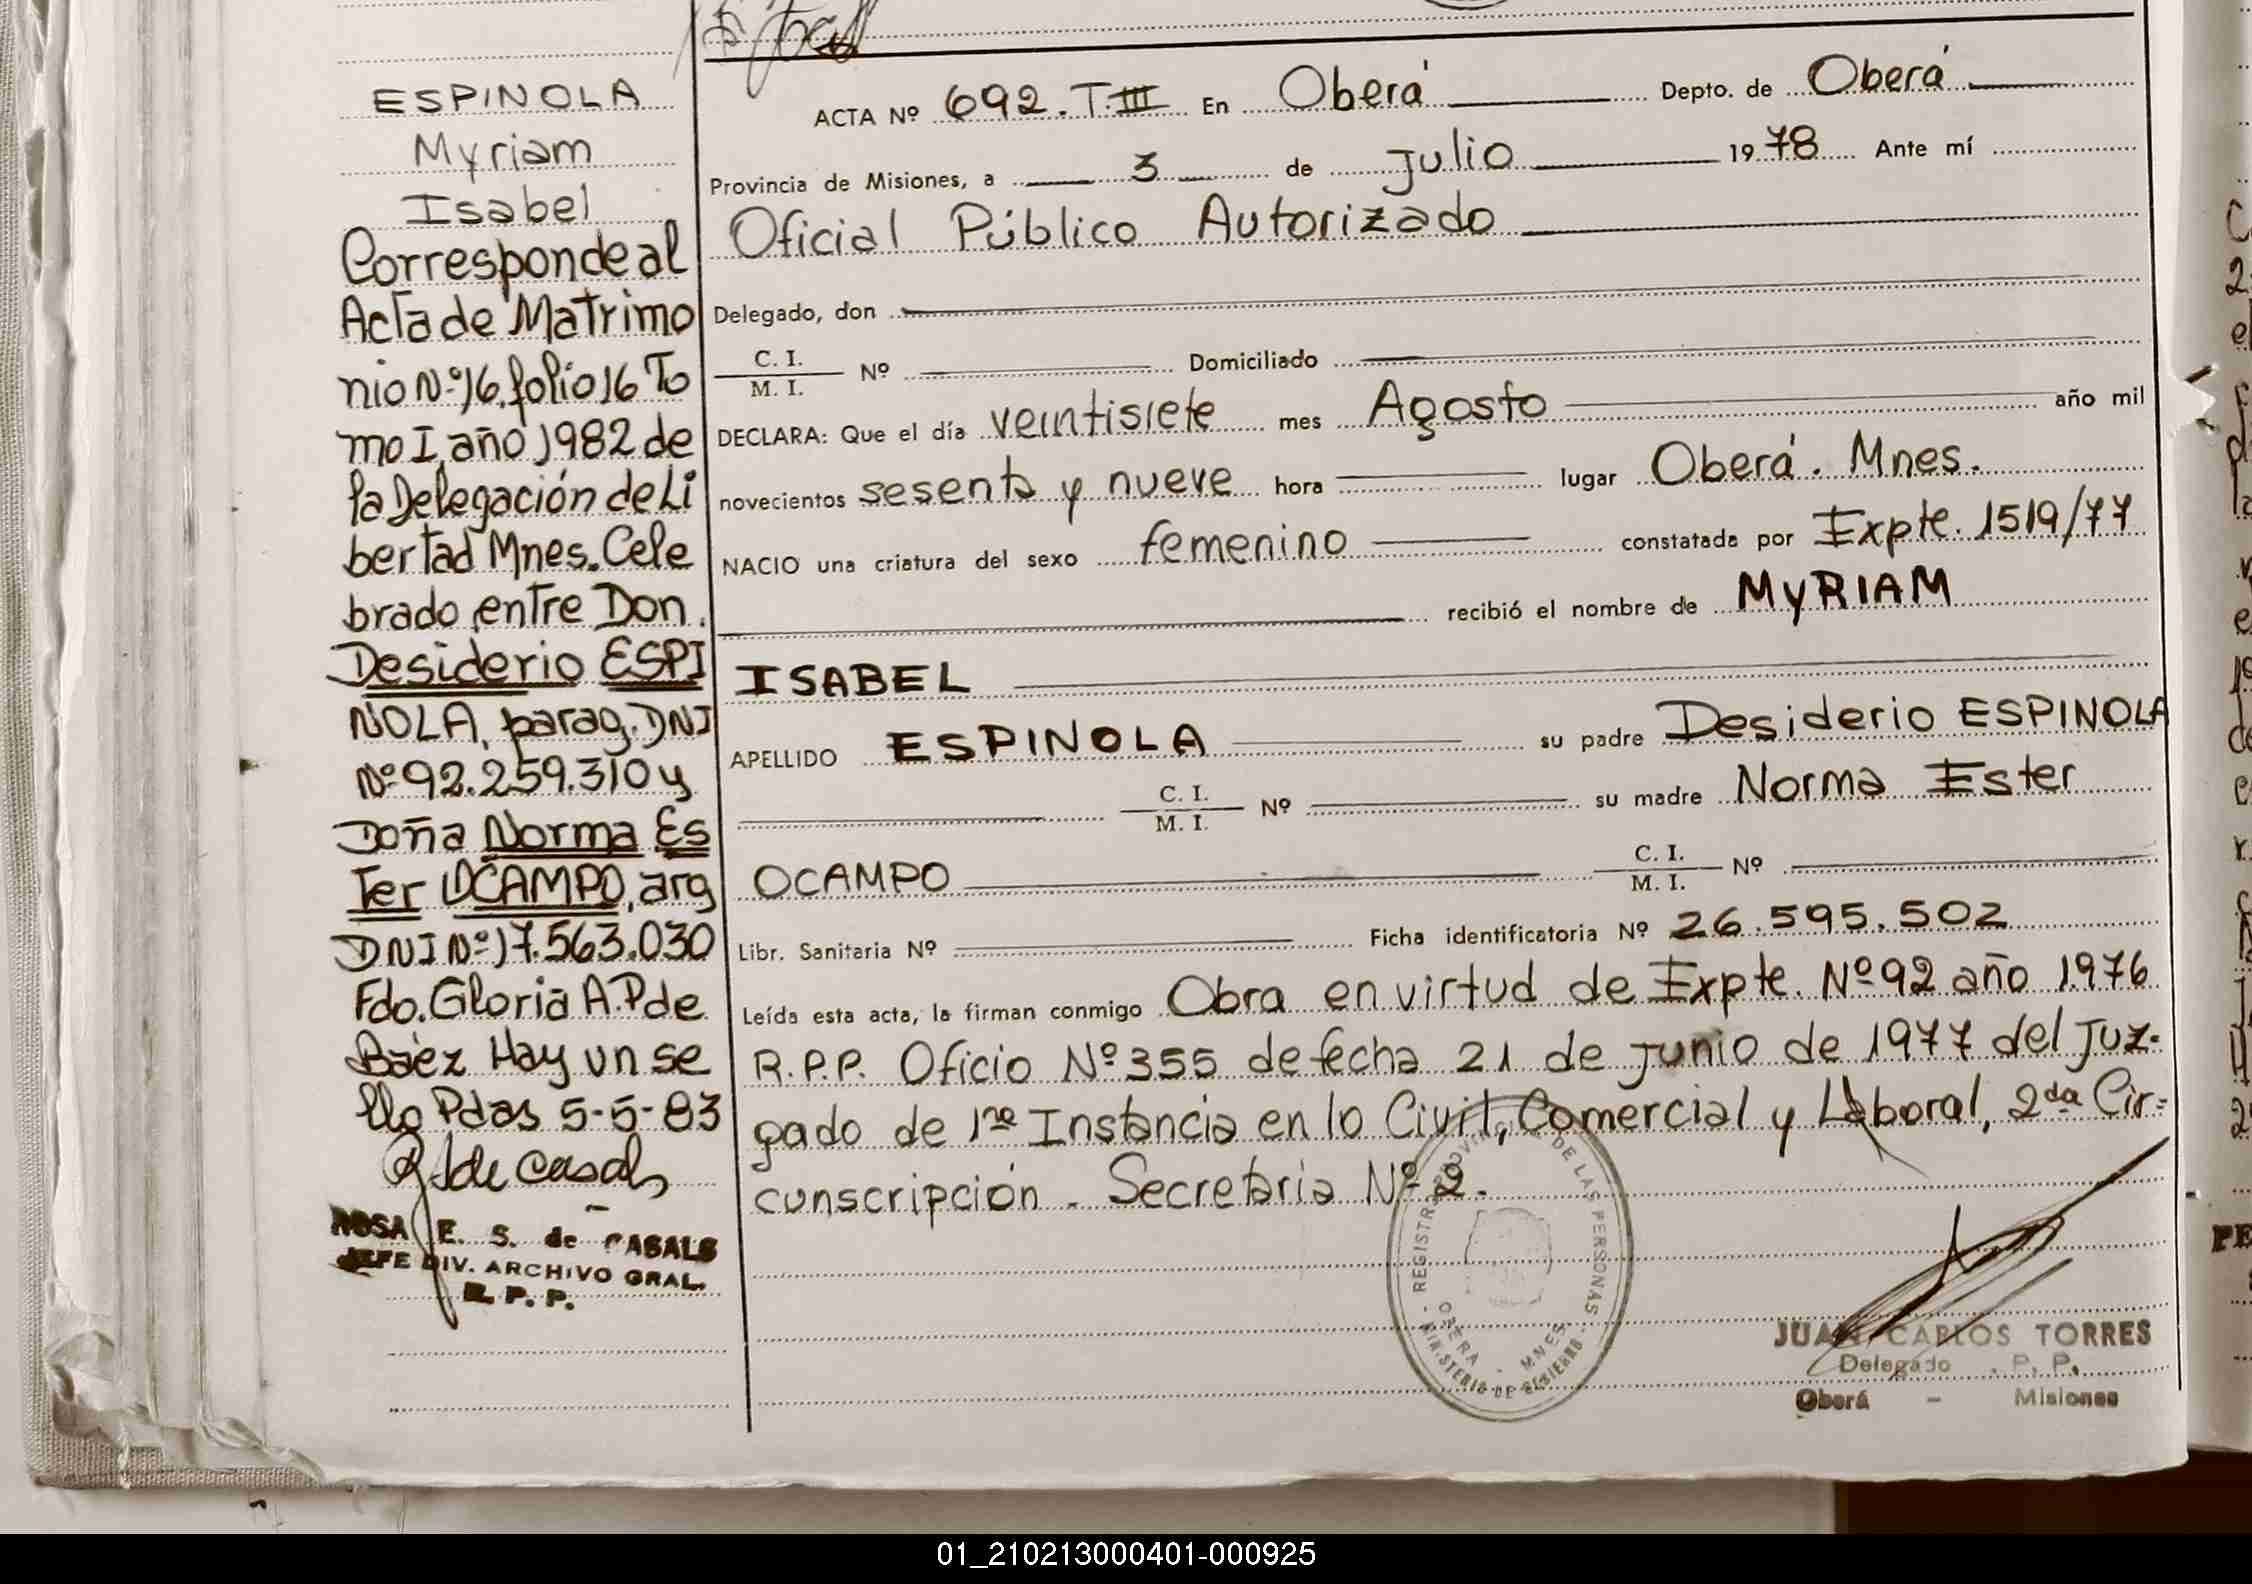 ESPINOLA
Myriam
Isabel
Corresponde al
Acta de Matrimo
nio Nº 16, folio 16 To
mo I, año 1982 de
la Delegación de Li
bertad Mnes. Cele
brado entre Don.
Desiderio ESPI
NOLA, parag. DNI
Nº 92.259.310 y
Doña Norma Es
Ter OCAMPO, arg
DNI Nº 17.563.030
Fdo. Gloria A. P de
Báez Hay un se
llo Pdas 5-5-83
de Casals
ROSA E. S. de CASALS
JEFE DIV. ARCHIVO GRAL.
R. P. P.
ACTA Nº 692. T. III En Oberá Depto. de Oberá
Provincia de Misiones, a 3 de Julio 1978 Ante mí
Oficial Público Autorizado
Delegado, don
C. I. M. I. Nº Domiciliado
DECLARA: Que el día veintisiete mes Agosto año mil
novecientos sesenta y nueve hora lugar Oberá. Mnes.
NACIO una criatura del sexo femenino constatada por Expte. 1519/77
recibió el nombre de MyRIAM
ISABEL
APELLIDO ESPINOLA su padre Desiderio ESPINOLA
C. I. M. I. Nº su madre Norma Ester
OCAMPO C. I. M. I. Nº
Libr. Sanitaria Nº Ficha identificatoria Nº 26.595.502
Leída esta acta, la firman conmigo Obra en virtud de Expte. Nº 92 año 1.976
R.P.P. Oficio Nº 355 de fecha 21 de Junio de 1977 del Juz-
gado de 1ra Instancia en lo Civil, Comercial y Laboral, 2da Cir=
cunscripción - Secretaria Nº 2.
REGISTRO PROVINCIAL DE LAS PERSONAS
OBERA - MNES
MINISTERIO DE GOBIERNO
JUAN CARLOS TORRES
Delegado R. P. P.
Oberá - Misiones
01_210213000401-000925